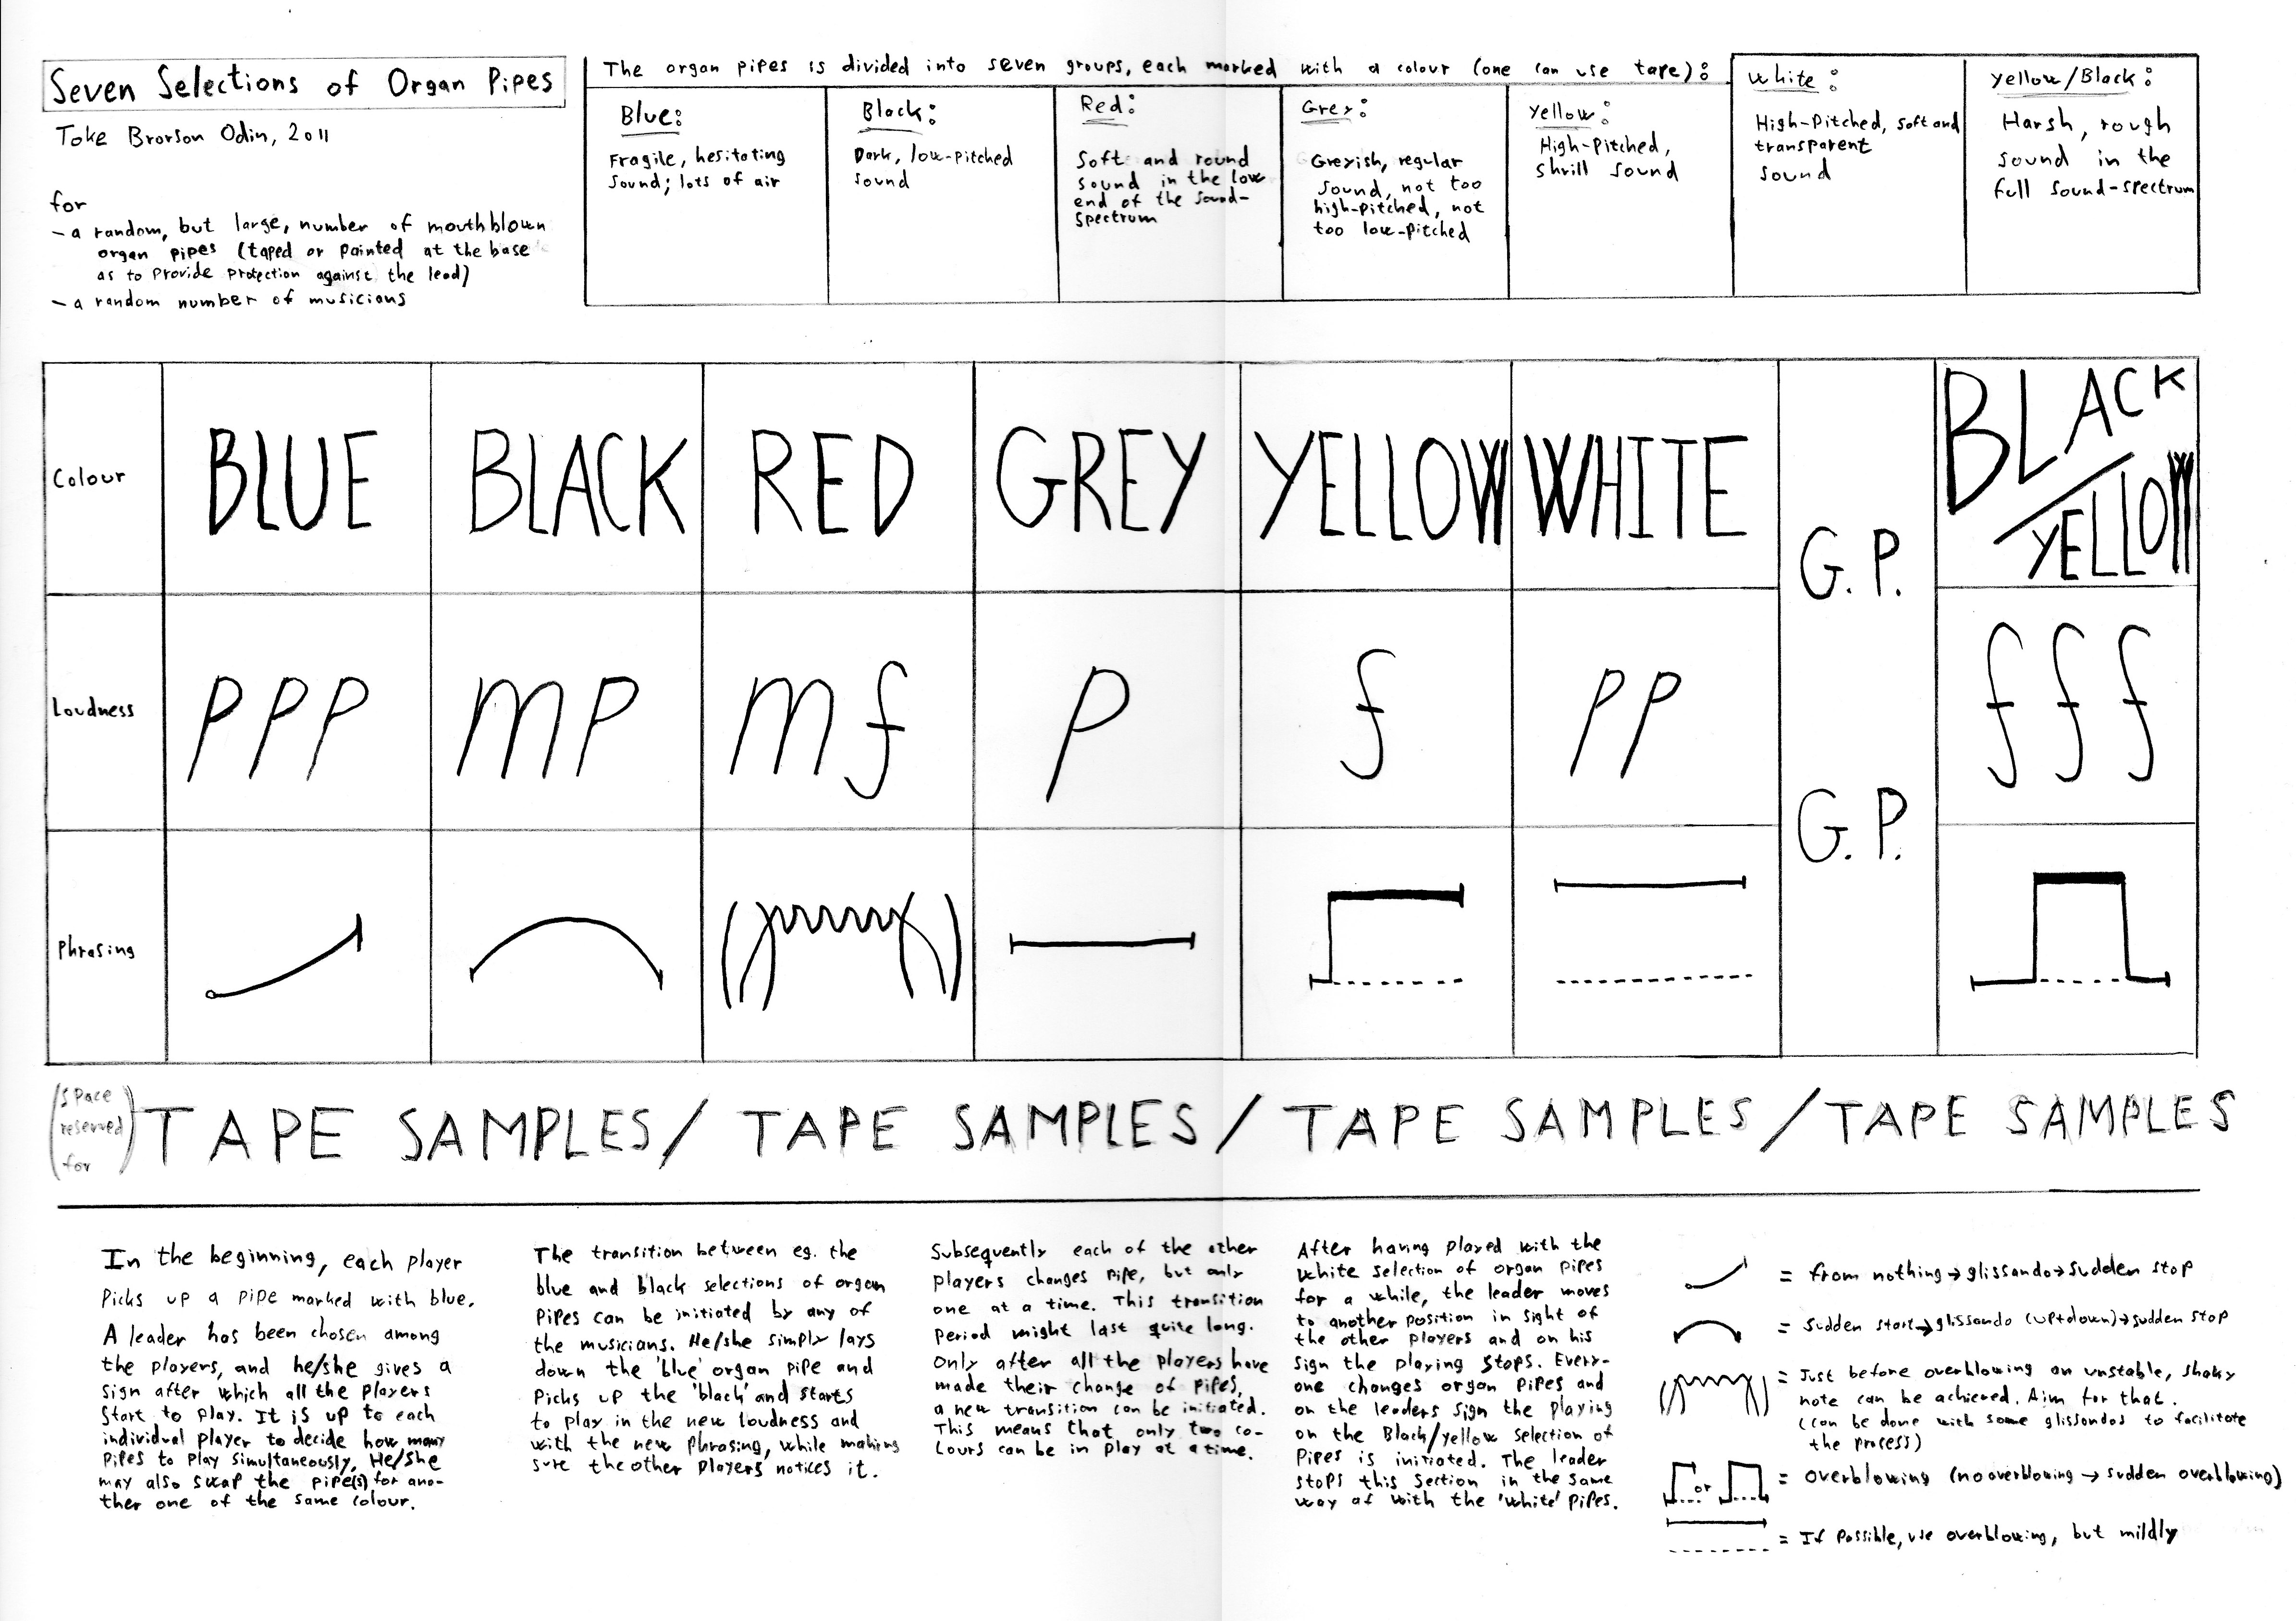 Seven Selections of Organ Pipes
Toke Brorson Odin, 2011
for
- a random, but large, number of mouthblown
organ pipes (taped or painted at the base
as to provide protection against the lead)
- a random number of musicians
The organ pipes is divided into seven groups, each marked with a colour (one can use tape):
Blue:
Fragile, hesitating
sound; lots of air
Black:
Dark, low-pitched
sound
Red:
Soft and round
sound in the low
end of the sound-
spectrum
Grey:
Greyish, regular
sound, not too
high-pitched, not
too low-pitched
Yellow:
High-pitched,
shrill sound
White:
High-pitched, soft and
transparent
sound
Yellow/Black:
Harsh, rough
sound in the
full sound-spectrum
Colour
BLUE
BLACK
RED
GREY
YELLOW
WHITE
G.P.
BLACK
/YELLOW
Loudness
ppp
mp
mf
p
f
pp
G.P.
fff
Phrasing
(space
reserved
for)
TAPE SAMPLES/ TAPE SAMPLES/ TAPE SAMPLES/TAPE SAMPLES
In the beginning, each player
picks up a pipe marked with blue.
A leader has been chosen among
the players, and he/she gives a
sign after which all the players
start to play. It is up to each
individual player to decide how many
pipes to play simultaneously. He/she
may also swap the pipe(s) for ano-
ther one of the same colour.
The transition between eg. the
blue and black selections of organ
pipes can be initiated by any of
the musicians. He/she simply lays
down the 'blue' organ pipe and
picks up the 'black' and starts
to play in the new loudness and
with the new phrasing, while making
sure the other players notices it.
Subsequently each of the other
players changes pipe, but only
one at a time. This transition
period might last quite long.
Only after all the players have
made their change of pipes,
a new transition can be initiated.
This means that only two co-
lours can be in play at a time.
After having played with the
white selection of organ pipes
for a while, the leader moves
to another position in sight of
the other players and on his
sign the playing stops. Every-
one changes organ pipes and
on the leaders sign the playing
on the Black/yellow selection of
pipes is initiated. The leader
stops this section in the same
way as with the 'white' pipes.
= from nothing→glissando→sudden stop
= sudden start→glissando (up+down)→sudden stop
= Just before overblowing an unstable, shaky
note can be achieved. Aim for that.
(can be done with some glissandos to facilitate
the process)
or = overblowing (no overblowing → sudden overblowing)
= If possible, use overblowing, but mildly